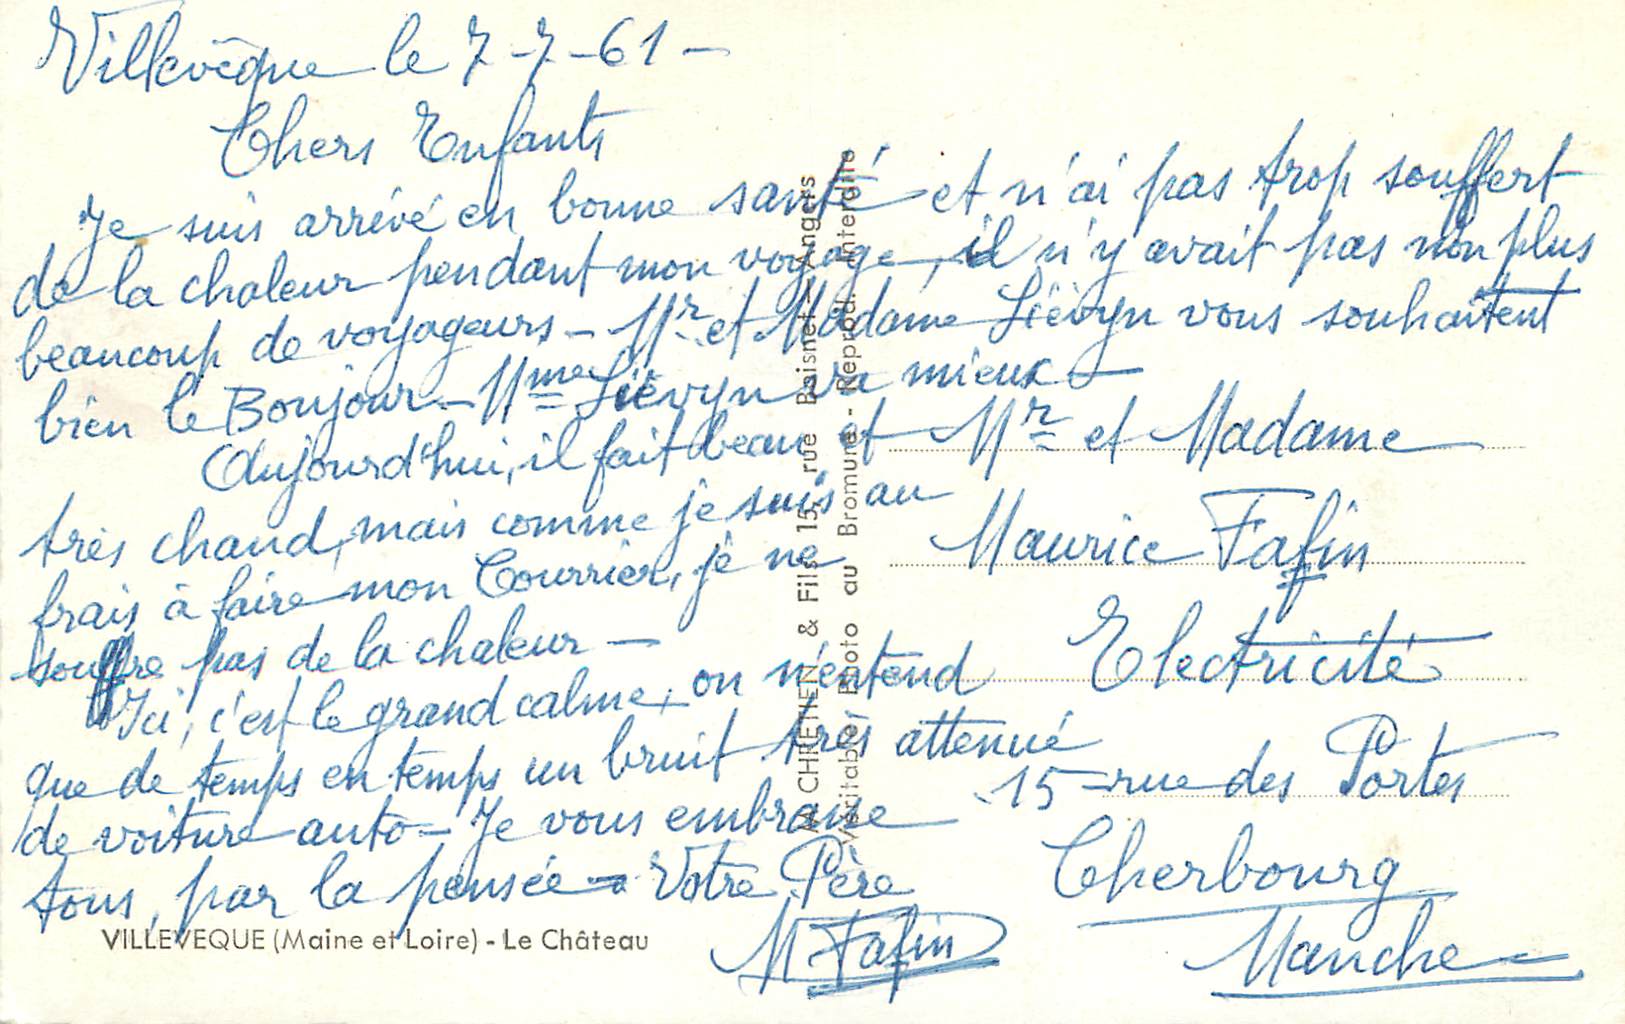 Villevêque le 7-7-61-
Chers Enfants
Je suis arrivé en bonne santé et n'ai pas trop souffert
de la chaleur pendant mon voyage, il n'y avait pas non plus
beaucoup de voyageurs - Mr et Madame Liévyn vous souhaitent
bien le Bonjour - Mme Liévyn va mieux -
Aujourd'hui, il fait beau et
très chaud, mais comme je suis au
frais à faire mon Courrier, je ne
souffre pas de la chaleur -
Ici, c'est le grand calme, on n'entend
que de temps en temps un bruit très attenué
de voiture auto - Je vous embrasse
tous, par la pensée - Votre Père
M Fafin
VILLEVEQUE (Maine et Loire) - Le Château
CHRETIEN & Fils 15, rue Boisnet - Angers
Véritable Photo au Bromure - Reprod. Interdite
Mr et Madame
Maurice Fafin
Electricité
15 - rue des Portes
Cherbourg
Manche